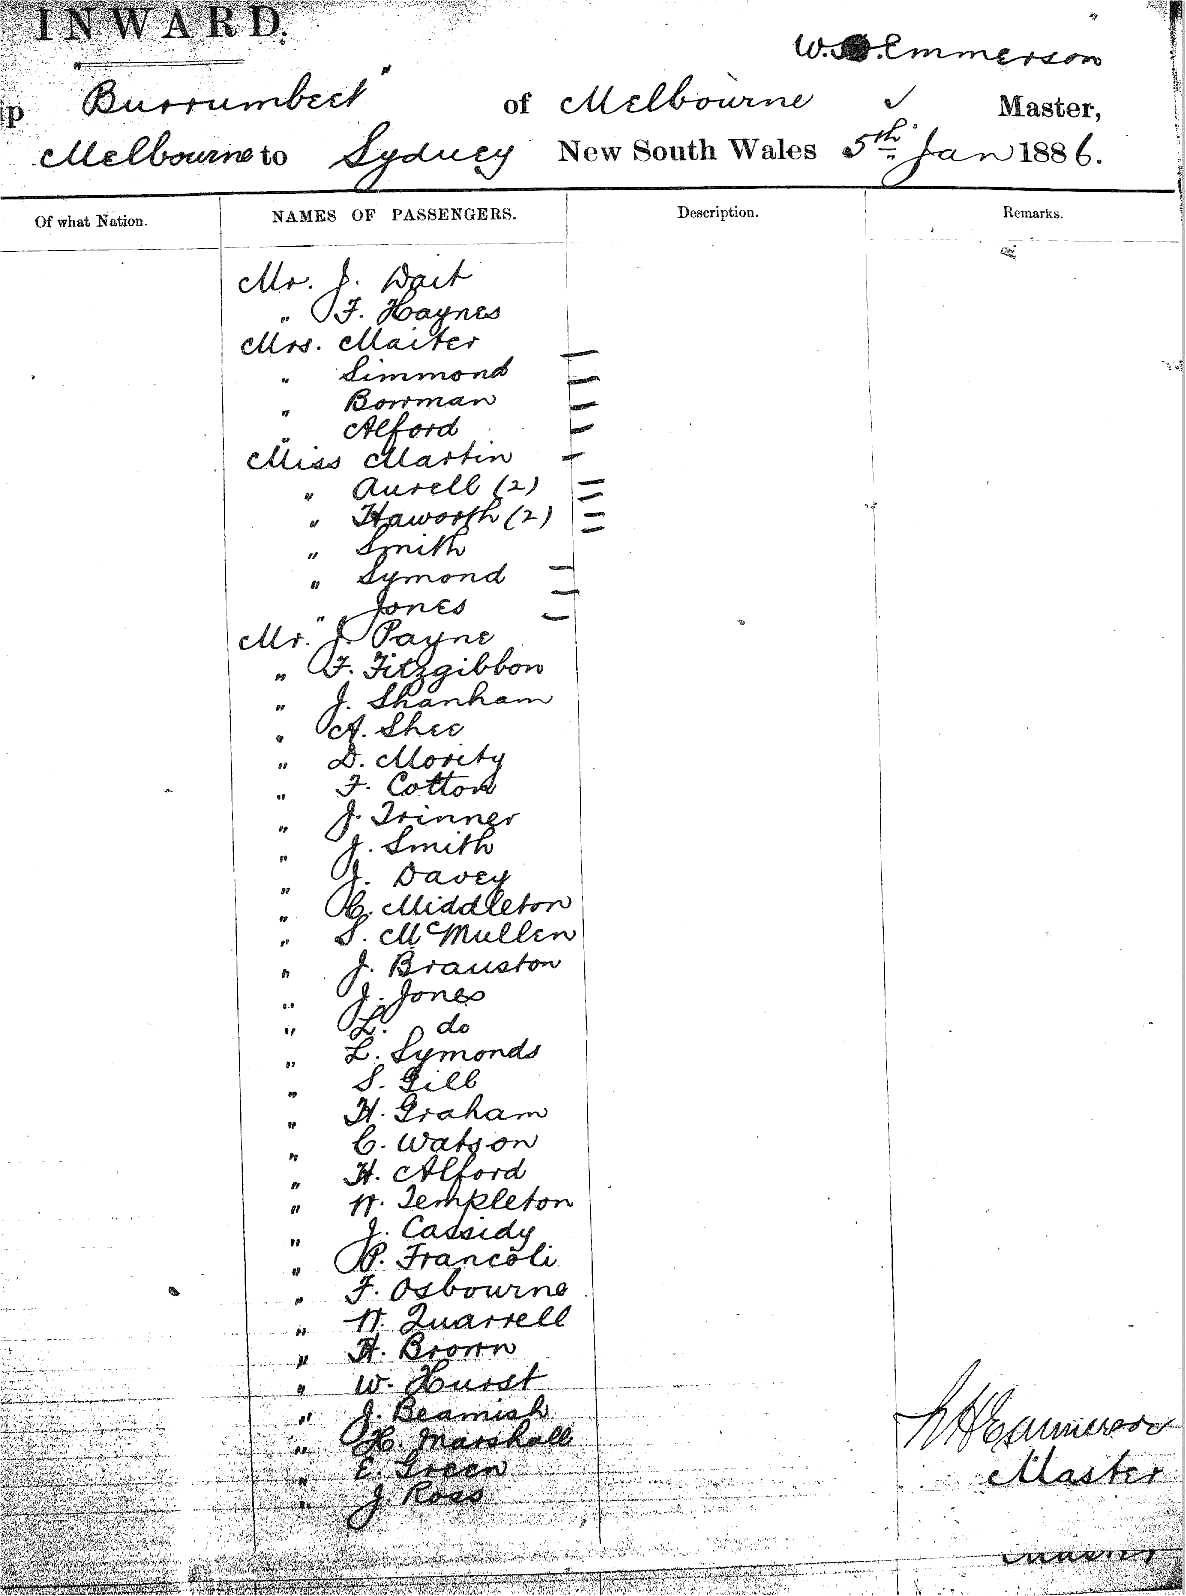 INWARD.
W. Emmerson
"Burrumbeet" of Melbourne ✓ Master,
Melbourne to Sydney New South Wales 5th Jan 1886.
Of what Nation. NAMES OF PASSENGERS. Description. Remarks.
Mr. J. Dait
" F. Haynes
Mrs. Maiter
" Simmond
" Bowman
" Alford
Miss Martin
" Aurell (2)
" Haworth (2)
" Smith
" Symond
" Jones
Mr. J. Payne
" F. Fitzgibbon
" J. Shanham
" A. Shee
" D. Mority
" F. Cotton
" J. Trinner
" J. Smith
" J. Davey
" C. Middleton
" S. McMullen
" J. Brauston
" J. Jones
" L. do
" L. Symonds
" S. Gill
" H. Graham
" C. Watson
" H. Alford
" W. Templeton
" J. Cassidy
" P. Francoli
" F. Osbourne
" W. Quarrell
" H. Brown
" W. Hurst
" J. Beamish
" H. Marshall
" E. Green
" J. Ross
Emmerson
Master